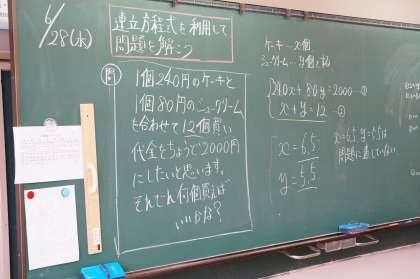 6/28(水)
連立方程式を利用して
問題を解こう
問
1個240円のケーキと
1個80円のシュークリーム
を合わせて12個買い
代金をちょうど2000円
にしたいと思います。
それぞれ何個買えば
いいかな？
ケーキ…x個
シュークリーム…y個とする
240x+80y=2000 ①
x+y=12 ②
x=6.5
y=5.5
x=6.5 y=5.5は
問題に適していない。